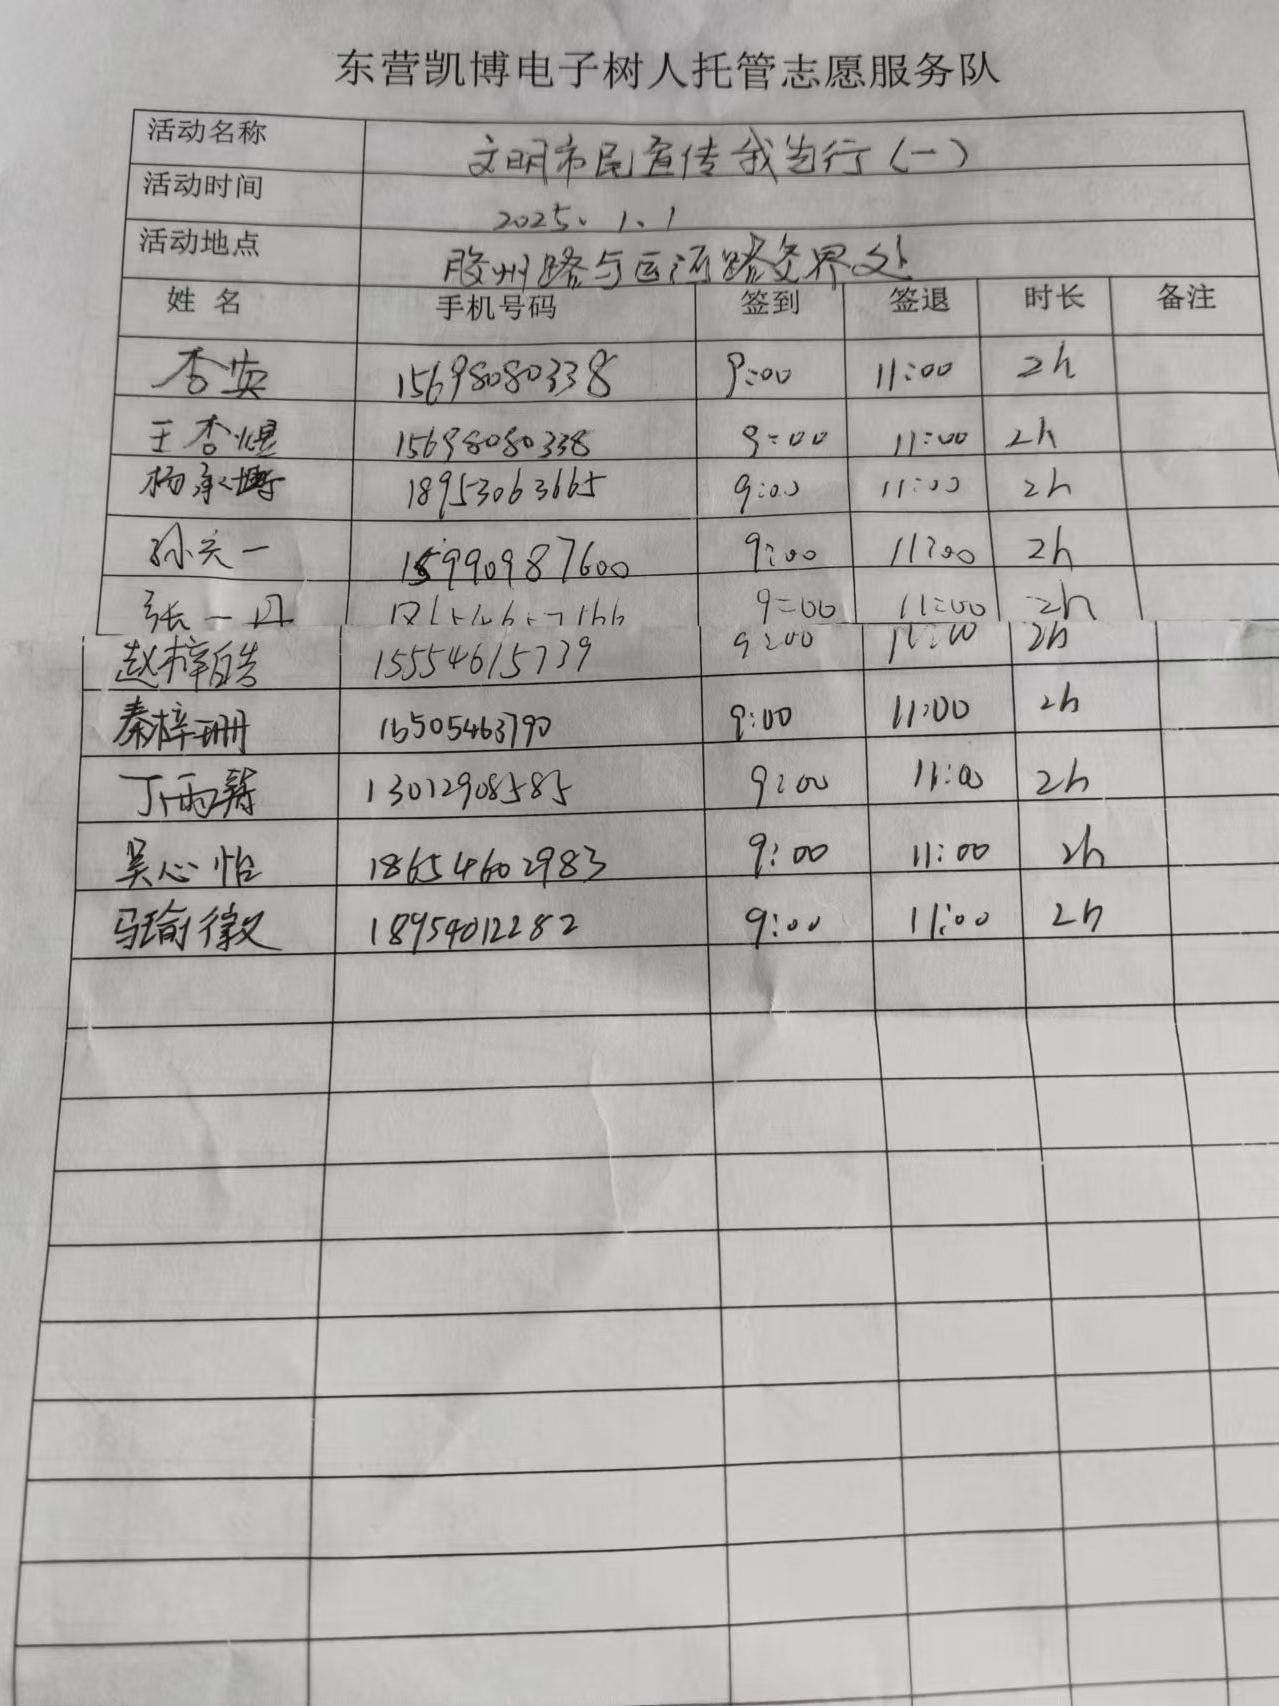 东营凯博电子树人托管志愿服务队
活动名称 文明市民宣传我先行（一）
活动时间 2025、1、1
活动地点 胶州路与运河路交界处
姓名 手机号码 签到 签退 时长 备注
杏安 15698080338 9:00 11:00 2h
王杏煜 15698080338 9:00 11:00 2h
杨承 18953063665 9:00 11:00 2h
孙天一 15990987600 9:00 11:00 2h
张一丹 9:00 11:00 2h
赵梓皓 15554615739 9:00 11:00 2h
秦梓珊 9:00 11:00 2h
丁雨 13012908585 9:00 11:00 2h
吴心怡 18654602983 9:00 11:00 2h
马瑜徽 18954012282 9:00 11:00 2h